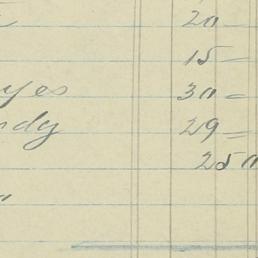 20 -
15 -
yes 30 =
ndy 29 =
250
"